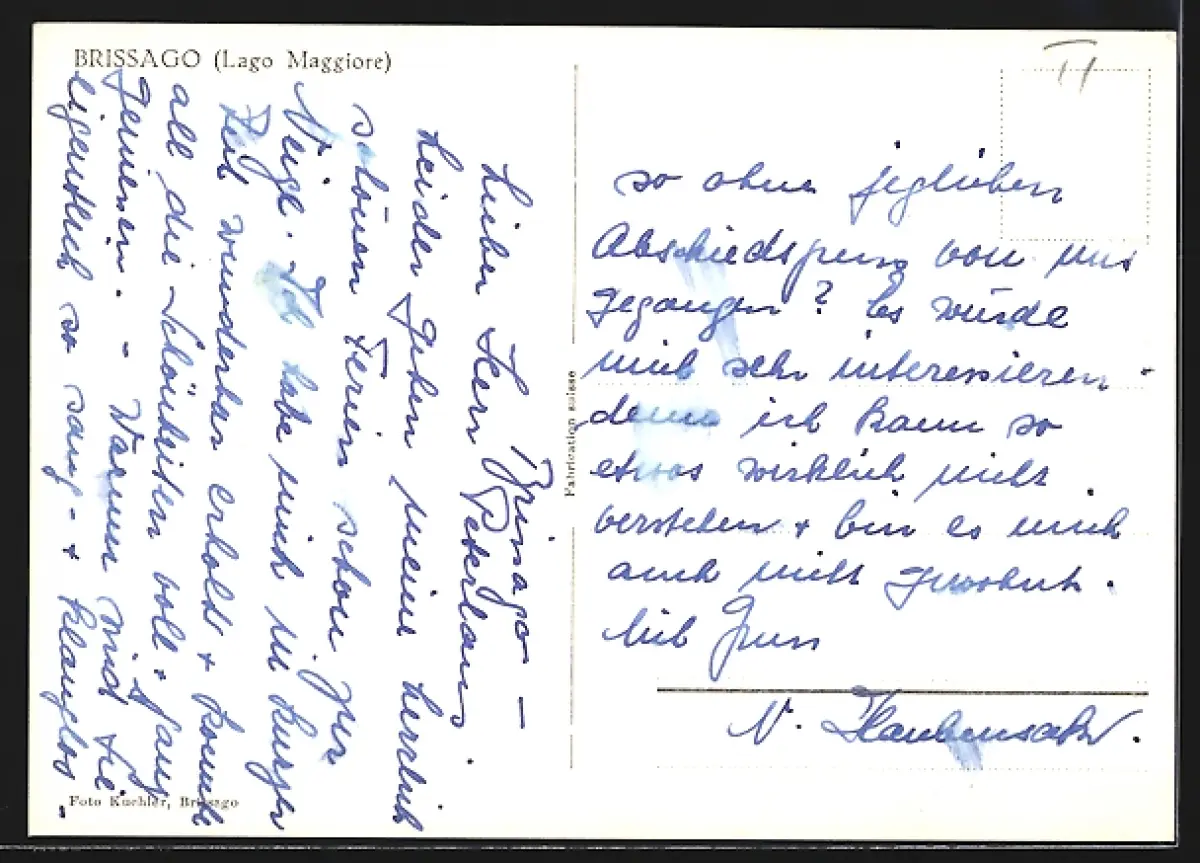 BRISSAGO (Lago Maggiore)
Brissago –
Lieber Herr Peterhans.
Leider gehen meine herrlich
schönen Ferien schon zur
Neige. Ich habe mich in kurzer
Zeit wunderbar erholt + konnte
all die Schönheiten voll + ganz
geniessen. - Warum sind Sie
eigentlich so sang- + klanglos -
Foto Kuchler, Brissago
Fabrication suisse
so ohne jeglichen
Abschiedsgruss von uns
gegangen? Es würde
mich sehr interessieren -
denn ich kann so
etwas wirklich nicht
verstehen + bin es mich
auch nicht gewohnt.
Mit Gruss
N.